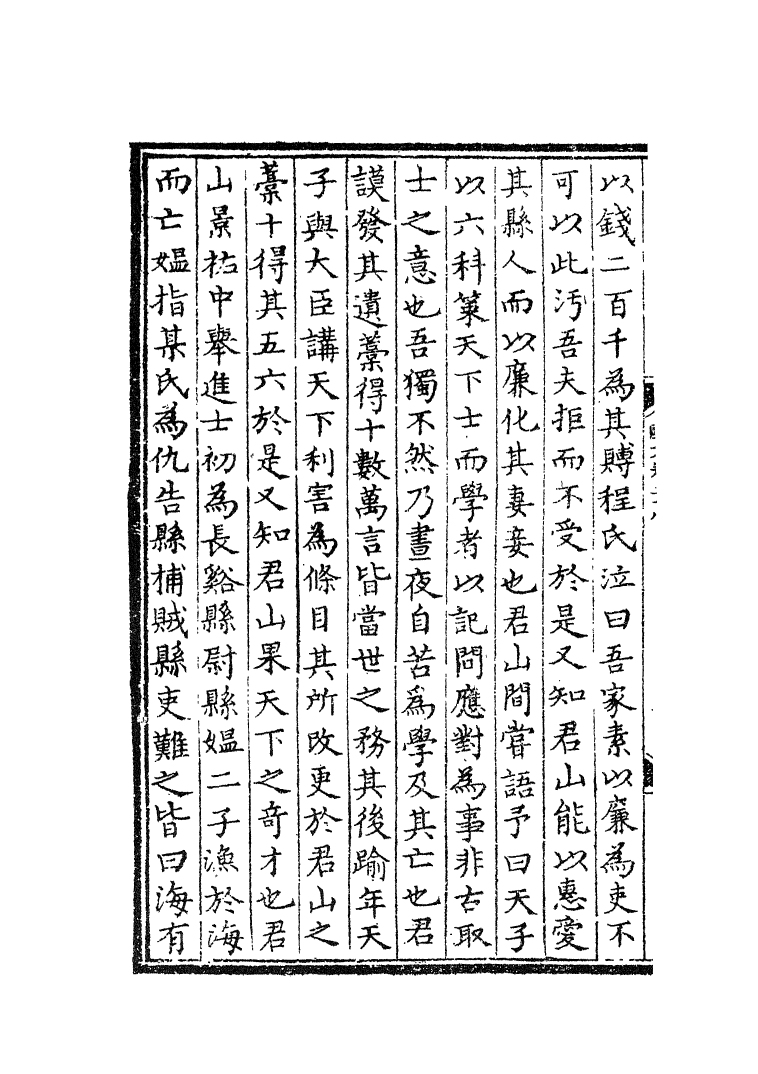 以錢二百千為其賻程氏泣曰吾家素以廉為吏不
可以此汚吾夫拒而不受於是又知君山能以惠愛
其縣人而以廉化其妻妾也君山間嘗語予曰天子
以六科策天下士而學者以記問應對為事非古取
士之意也吾獨不然乃晝夜自苦為學及其亡也君
謨發其遺藁得十數萬言皆當世之務其後踰年天
子與大臣講天下利害為條目其所改更於君山之
藁十得其五六於是又知君山果天下之奇才也君
山景祐中舉進士初為長谿縣尉縣媼二子漁於海
而亡媼指某氏為仇告縣捕賊縣吏難之皆曰海有